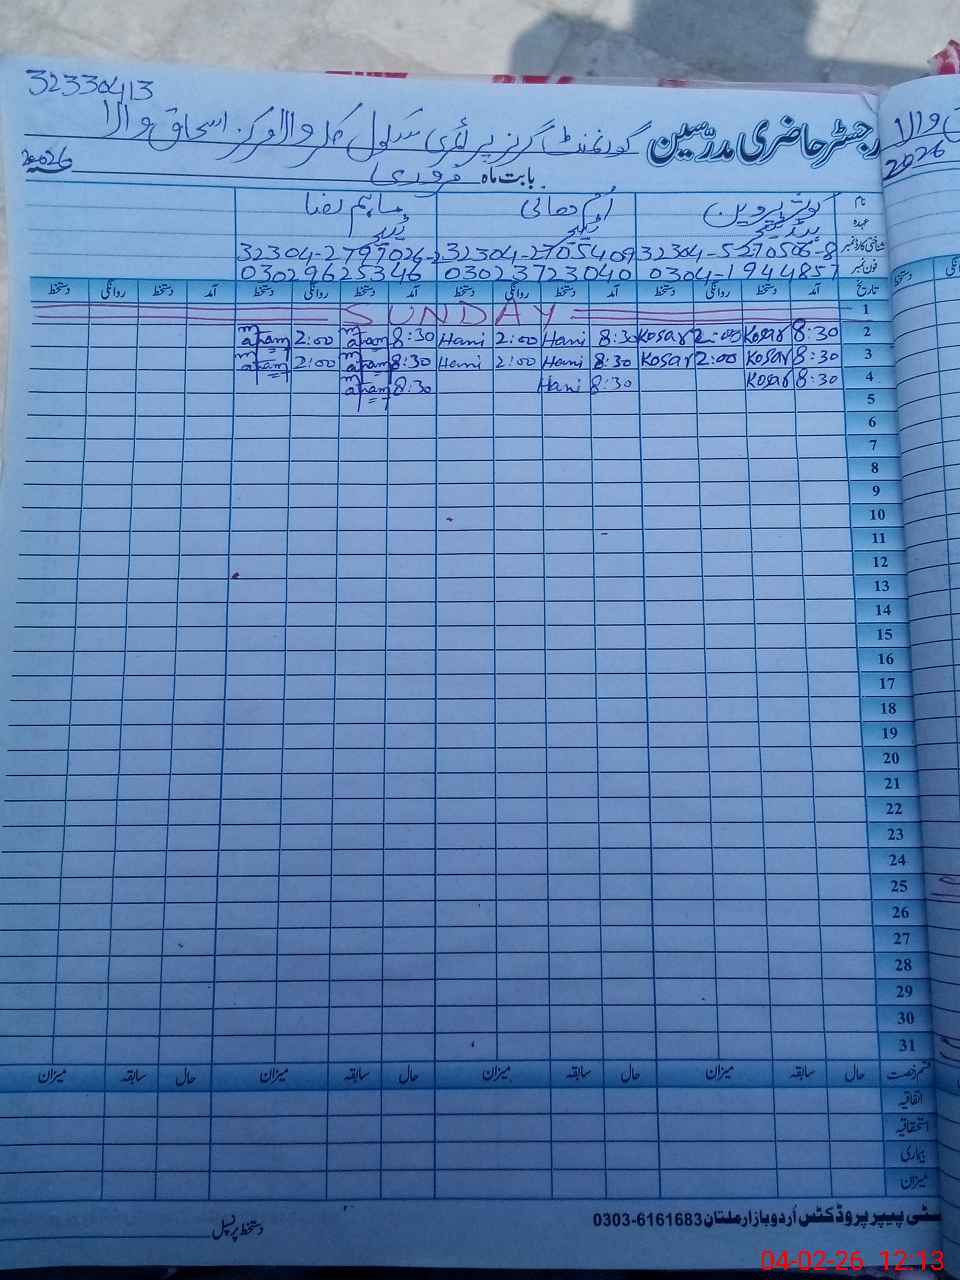 32330413
رجسٹر حاضری مدرسین گورنمنٹ گرلز پرائمری سکول والا مرکز اسحاق والا
بابت ماہ فروری 2026ء
نام کوثر پروین اُم ھانی ماہم رضا
عہدہ ہیڈ ٹیچر ٹیچر ٹیچر
شناختی کارڈ نمبر 32304-5270506-8 32304-2705409 32304-2797026-2
فون نمبر 0304-1944857 03023723040 03029625346
تاریخ آمد دستخط روانگی دستخط آمد دستخط روانگی دستخط آمد دستخط روانگی دستخط آمد دستخط روانگی دستخط
1 SUNDAY
2 8:30 Kosar 2:00 Kosar 8:30 Hani 2:00 Hani 8:30 maham 2:00 maham
3 8:30 Kosar 2:00 Kosar 8:30 Hani 2:00 Hani 8:30 maham 2:00 maham
4 8:30 Kosar 8:30 Hani 8:30 maham
5
6
7
8
9
10
11
12
13
14
15
16
17
18
19
20
21
22
23
24
25
26
27
28
29
30
31
قسم رخصت حال سابقہ میزان حال سابقہ میزان حال سابقہ میزان حال سابقہ میزان
اتفاقیہ
استحقاقیہ
بیماری
میزان
سٹی پیپر پروڈکٹس اُردو بازار ملتان 0303-6161683
دستخط پرنسپل
والا
2026
04-02-26 12:13